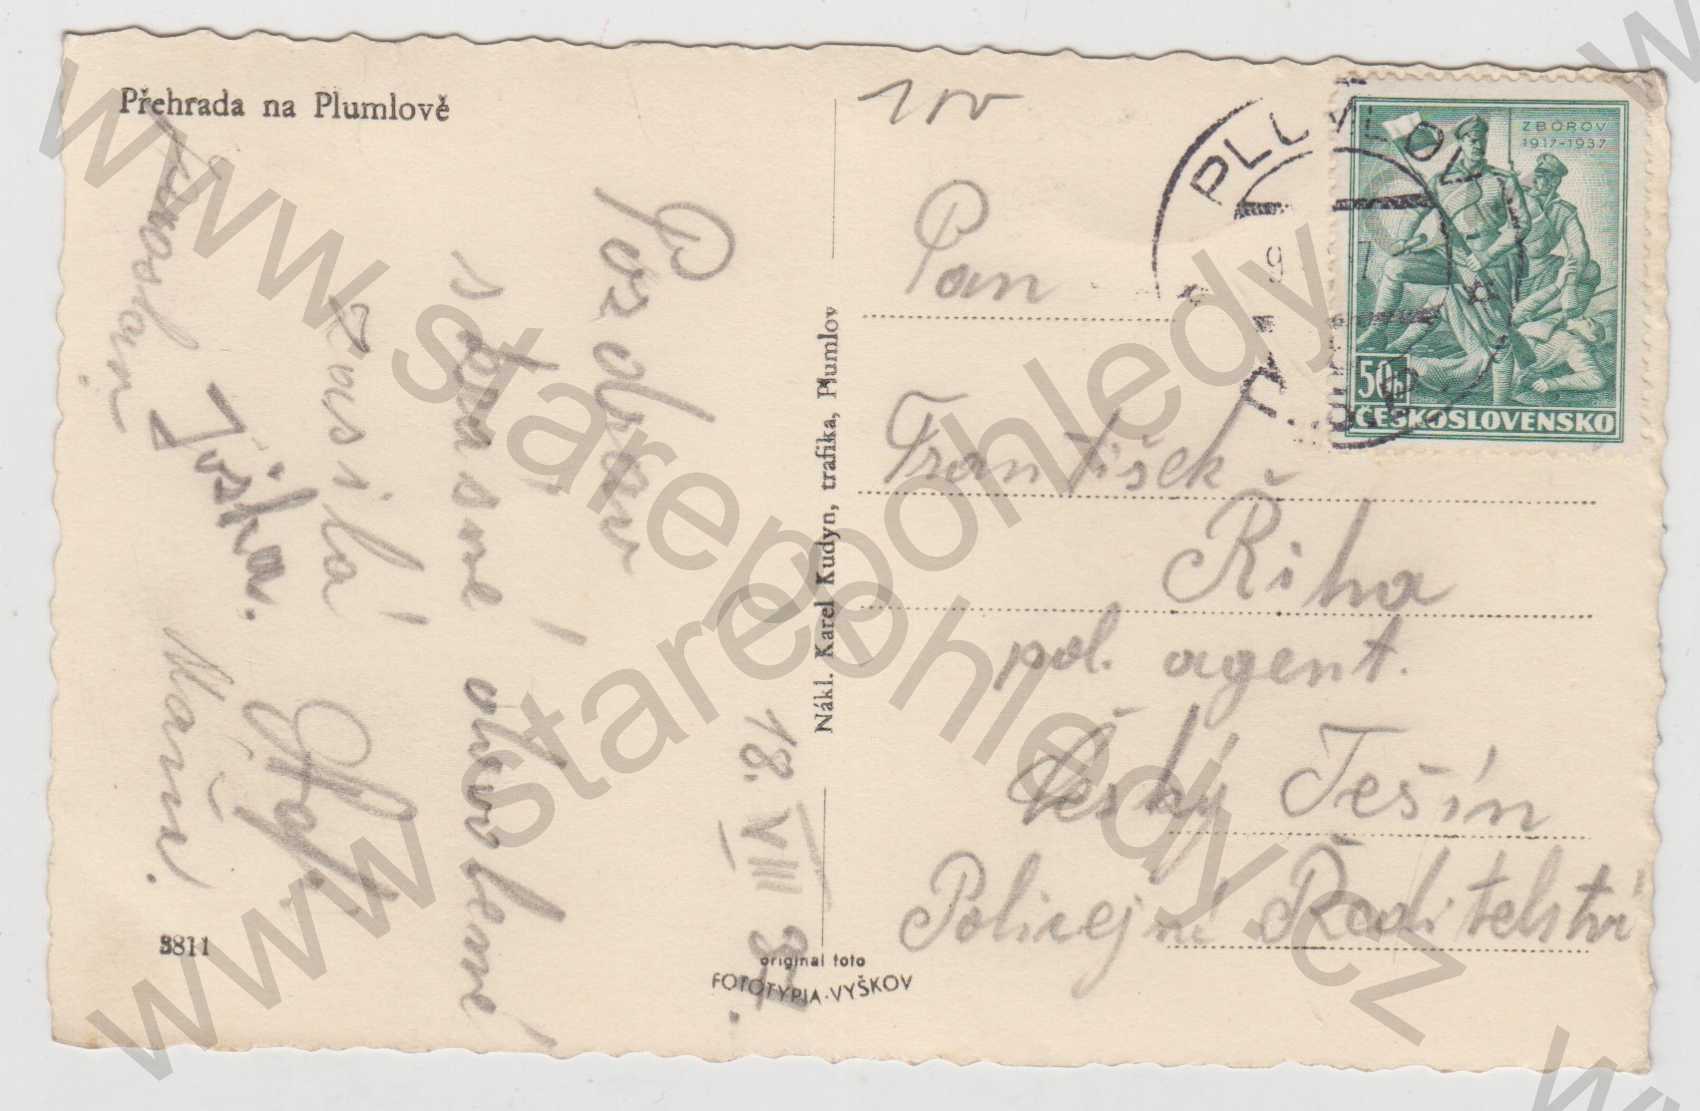 Přehrada na Plumlově
100
Pozdrav
z krásné
dovolené
zasílá
Jóška.
Máňa.
18. VIII 37.
Nákl. Karel Kudyn, trafika, Plumlov
3811
original foto
FOTOTYPIA-VYŠKOV
PLUMLOV
ZBOROV
1917-1937
50h
ČESKOSLOVENSKO
Pan
František
Říha
pol. agent.
Český Tešín
Policejní Ředitelství
www.starepohledy.cz
www.starepohledy.cz